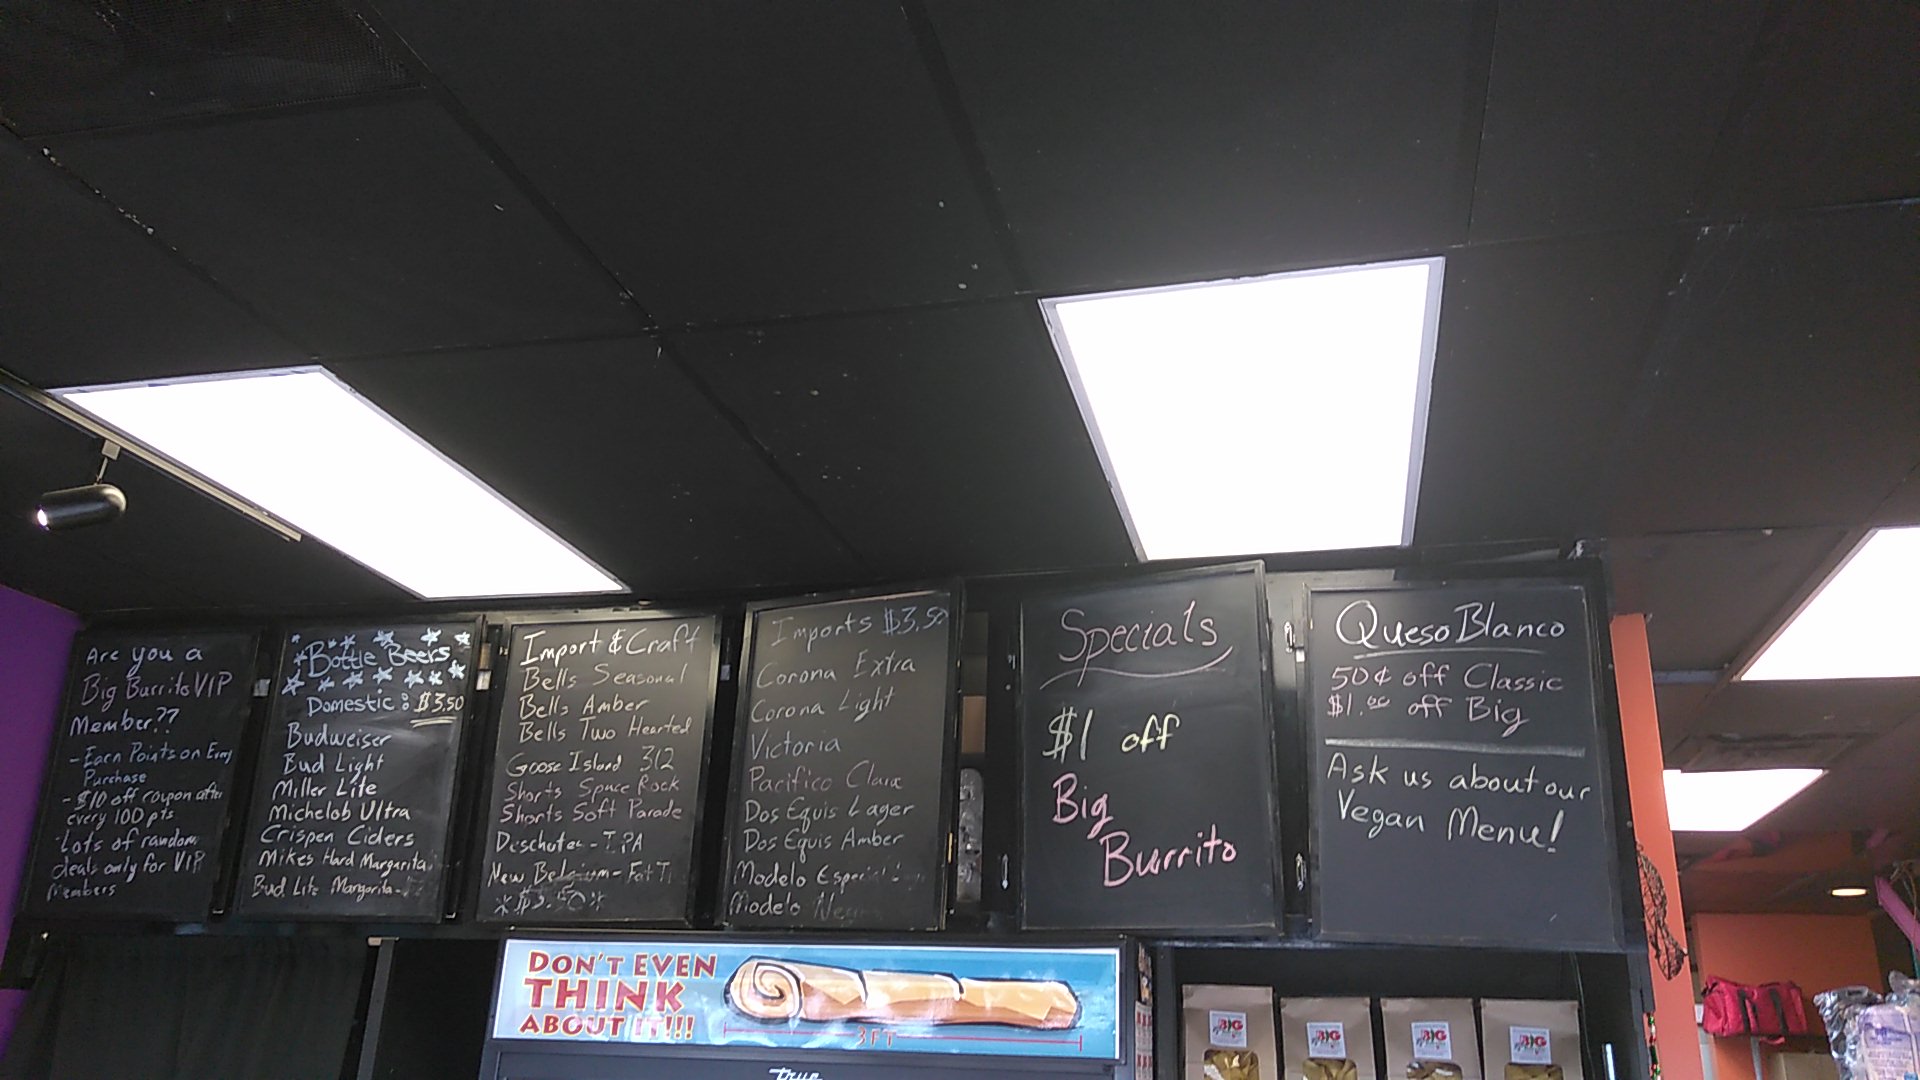 Are you a
Big Burrito VIP
Member??
- Earn Points on Every
Purchase
- $10 off coupon after
every 100 pts
- Lots of random
deals only for VIP
Members
Bottle Beers
Domestic: $3.50
Budweiser
Bud Light
Miller Lite
Michelob Ultra
Crispen Ciders
Mikes Hard Margarita
Bud Lite Margarita
Import & Craft
Bells Seasonal
Bells Amber
Bells Two Hearted
Goose Island 312
Shorts Space Rock
Shorts Soft Parade
Deschutes - IPA
New Belgium - Fat T
*$3.50*
Imports $3.50
Corona Extra
Corona Light
Victoria
Pacifico Clara
Dos Equis Lager
Dos Equis Amber
Modelo Especial
Modelo
Specials
$1 off
Big
Burrito
Queso Blanco
50¢ off Classic
$1.00 off Big
Ask us about our
Vegan Menu!
DON'T EVEN
THINK
ABOUT IT!!!
3FT
true
BIG
BIG
BIG
BIG